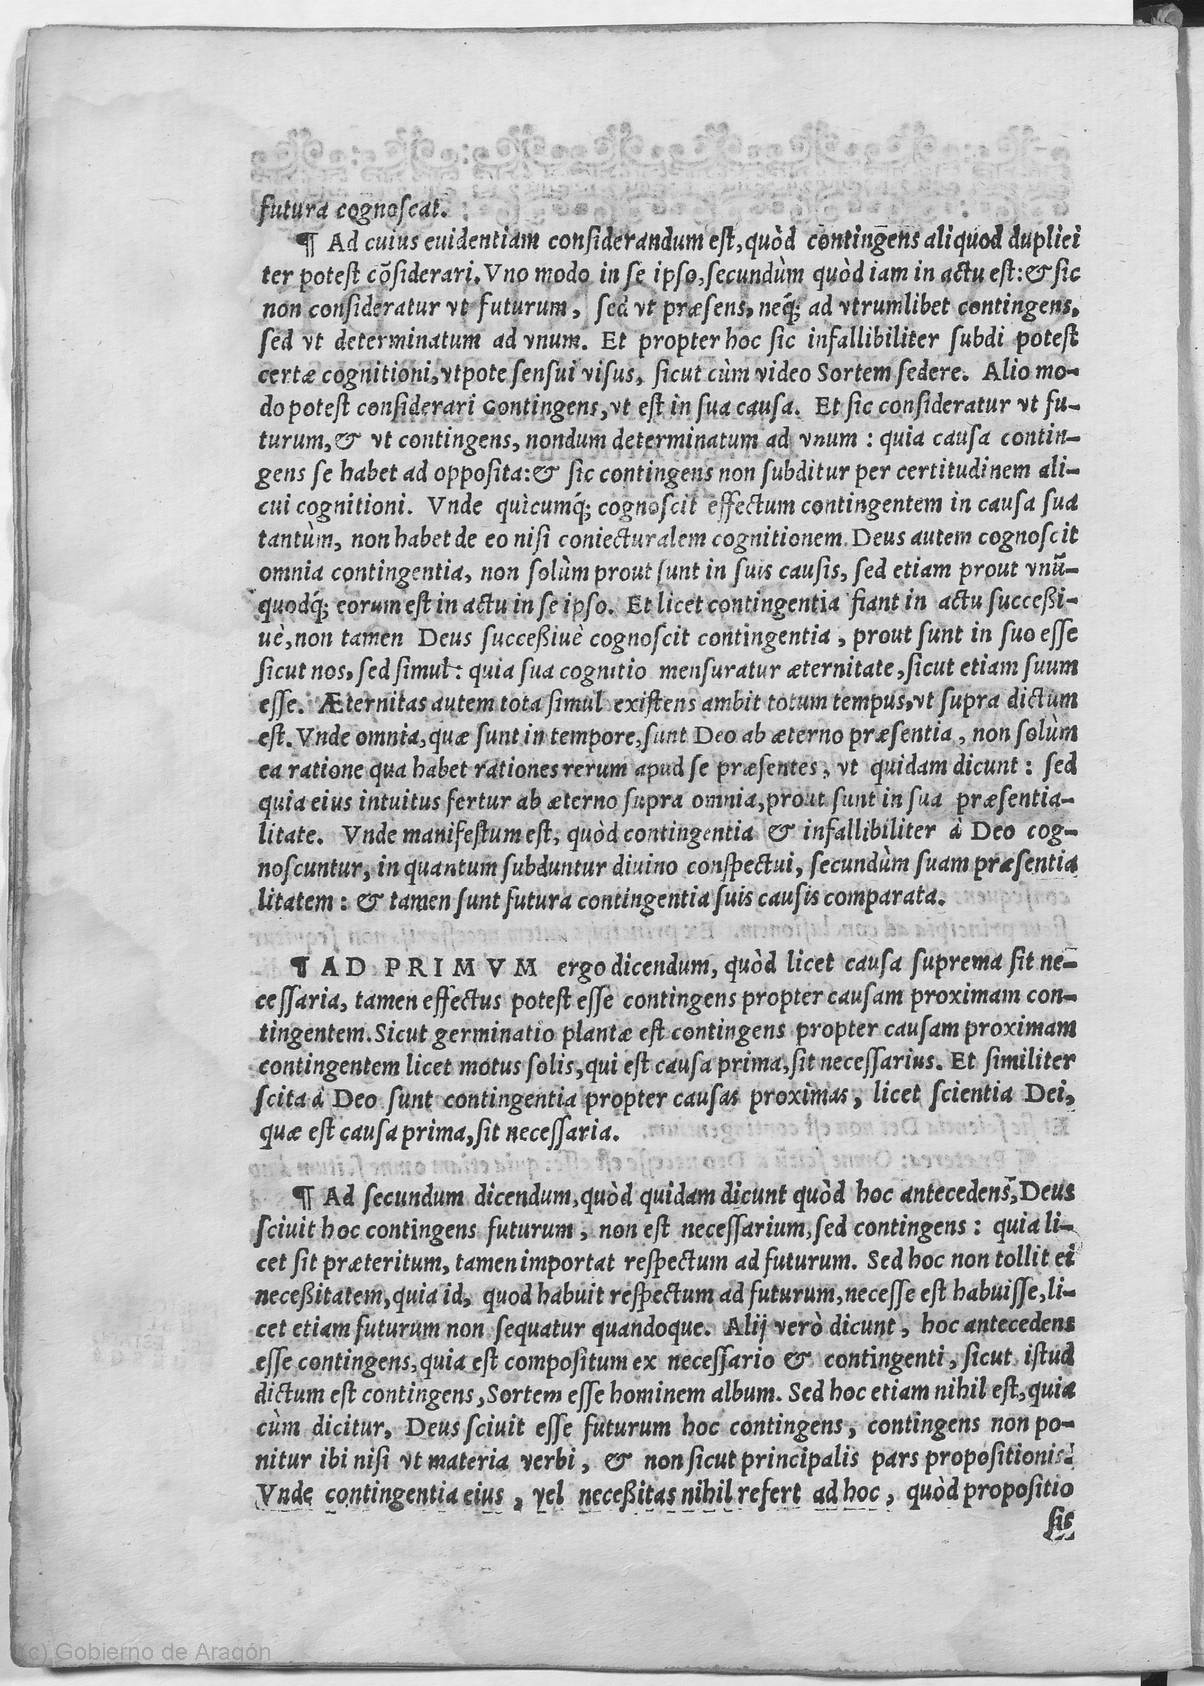 futura cognoscat.
¶ Ad cuius euidentiam considerandum est, quòd contingens aliquod duplici
ter potest cõsiderari. Vno modo in se ipso, secundùm quòd iam in actu est: & sic
non consideratur vt futurum, sed vt præsens, neq; ad vtrumlibet contingens,
sed vt determinatum ad vnum. Et propter hoc sic infallibiliter subdi potest
certæ cognitioni, vtpote sensui visus, sicut cùm video Sortem sedere. Alio mo-
do potest considerari contingens, vt est in sua causa. Et sic consideratur vt fu-
turum, & vt contingens, nondum determinatum ad vnum: quia causa contin-
gens se habet ad opposita: & sic contingens non subditur per certitudinem ali-
cui cognitioni. Vnde quicumq́; cognoscit effectum contingentem in causa sua
tantùm, non habet de eo nisi coniecturalem cognitionem. Deus autem cognoscit
omnia contingentia, non solùm prout sunt in suis causis, sed etiam prout vnũ-
quodq́; eorum est in actu in se ipso. Et licet contingentia fiant in actu successi-
uè, non tamen Deus successiuè cognoscit contingentia, prout sunt in suo esse
sicut nos, sed simul: quia sua cognitio mensuratur æternitate, sicut etiam suum
esse. Æternitas autem tota simul existens ambit totum tempus, vt supra dictum
est. Vnde omnia, quæ sunt in tempore, sunt Deo ab æterno præsentia, non solùm
ea ratione qua habet rationes rerum apud se præsentes, vt quidam dicunt: sed
quia eius intuitus fertur ab æterno supra omnia, prout sunt in sua præsentia-
litate. Vnde manifestum est, quòd contingentia & infallibiliter à Deo cog-
noscuntur, in quantum subduntur diuino conspectui, secundùm suam præsentia
litatem: & tamen sunt futura contingentia suis causis comparata.
¶ AD PRIMVM ergo dicendum, quòd licet causa suprema sit ne-
cessaria, tamen effectus potest esse contingens propter causam proximam con-
tingentem. Sicut germinatio plantæ est contingens propter causam proximam
contingentem licet motus solis, qui est causa prima, sit necessarius. Et similiter
scita à Deo sunt contingentia propter causas proximas, licet scientia Dei,
quæ est causa prima, sit necessaria.
¶ Ad secundum dicendum, quòd quidam dicunt quòd hoc antecedens, Deus
sciuit hoc contingens futurum, non est necessarium, sed contingens: quia li-
cet sit præteritum, tamen importat respectum ad futurum. Sed hoc non tollit ei
necessitatem, quia id, quod habuit respectum ad futurum, necesse est habuisse, li-
cet etiam futurum non sequatur quandoque. Alij verò dicunt, hoc antecedens
esse contingens, quia est compositum ex necessario & contingenti, sicut istud
dictum est contingens, Sortem esse hominem album. Sed hoc etiam nihil est, quia
cùm dicitur, Deus sciuit esse futurum hoc contingens, contingens non po-
nitur ibi nisi vt materia verbi, & non sicut principalis pars propositionis.
Vnde contingentia eius, vel necessitas nihil refert ad hoc, quòd propositio
sit
(c) Gobierno de Aragón